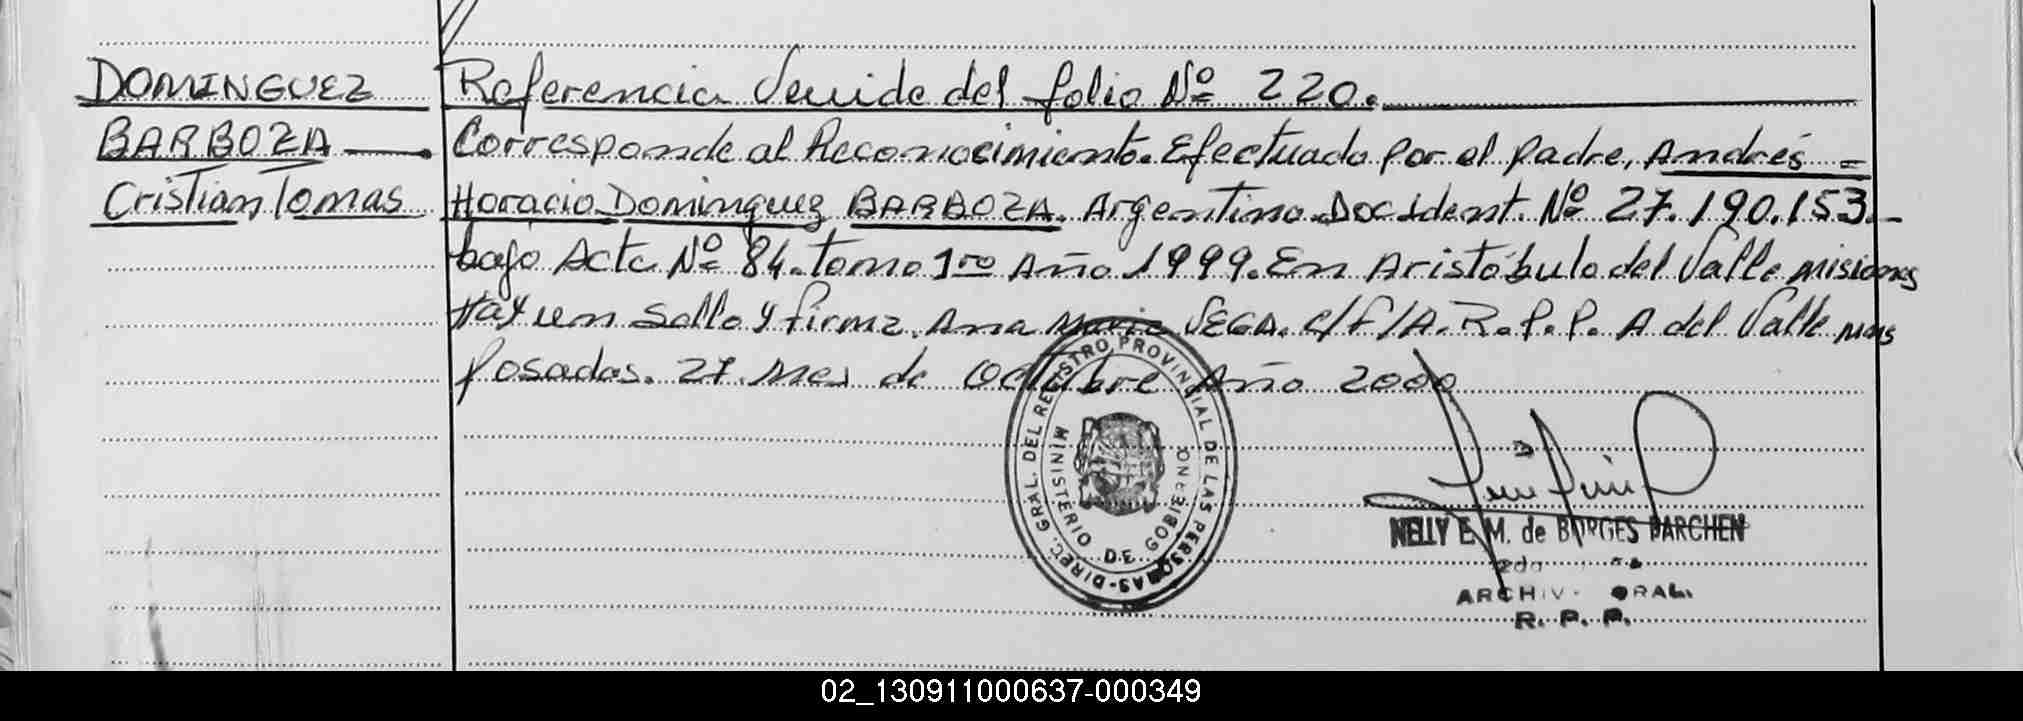 DOMINGUEZ Referencia Venida del folio Nº 220.
BARBOZA Corresponde al Reconocimiento Efectuado por el padre, Andrés =
Cristian Tomas Horacio Dominguez BARBOZA. Argentino Doc Ident. Nº 27.190.153
bajo Acta Nº 84. tomo 1ro Año 1999. En Aristóbulo del Valle Misiones
Hay un Sello y firma. Ana Maria VEGA. e/f/A. R.P.P. A del Valle Mns
Posadas. 27 Mes de Octubre Año 2000
DIREC. GRAL. DEL REGISTRO PROVINCIAL DE LAS PERSONAS
MINISTERIO DE GOBIERNO
NELLY E. M. de BORGES PARCHEN
2da
ARCHIV. GRAL.
R. P. P.
02_130911000637-000349